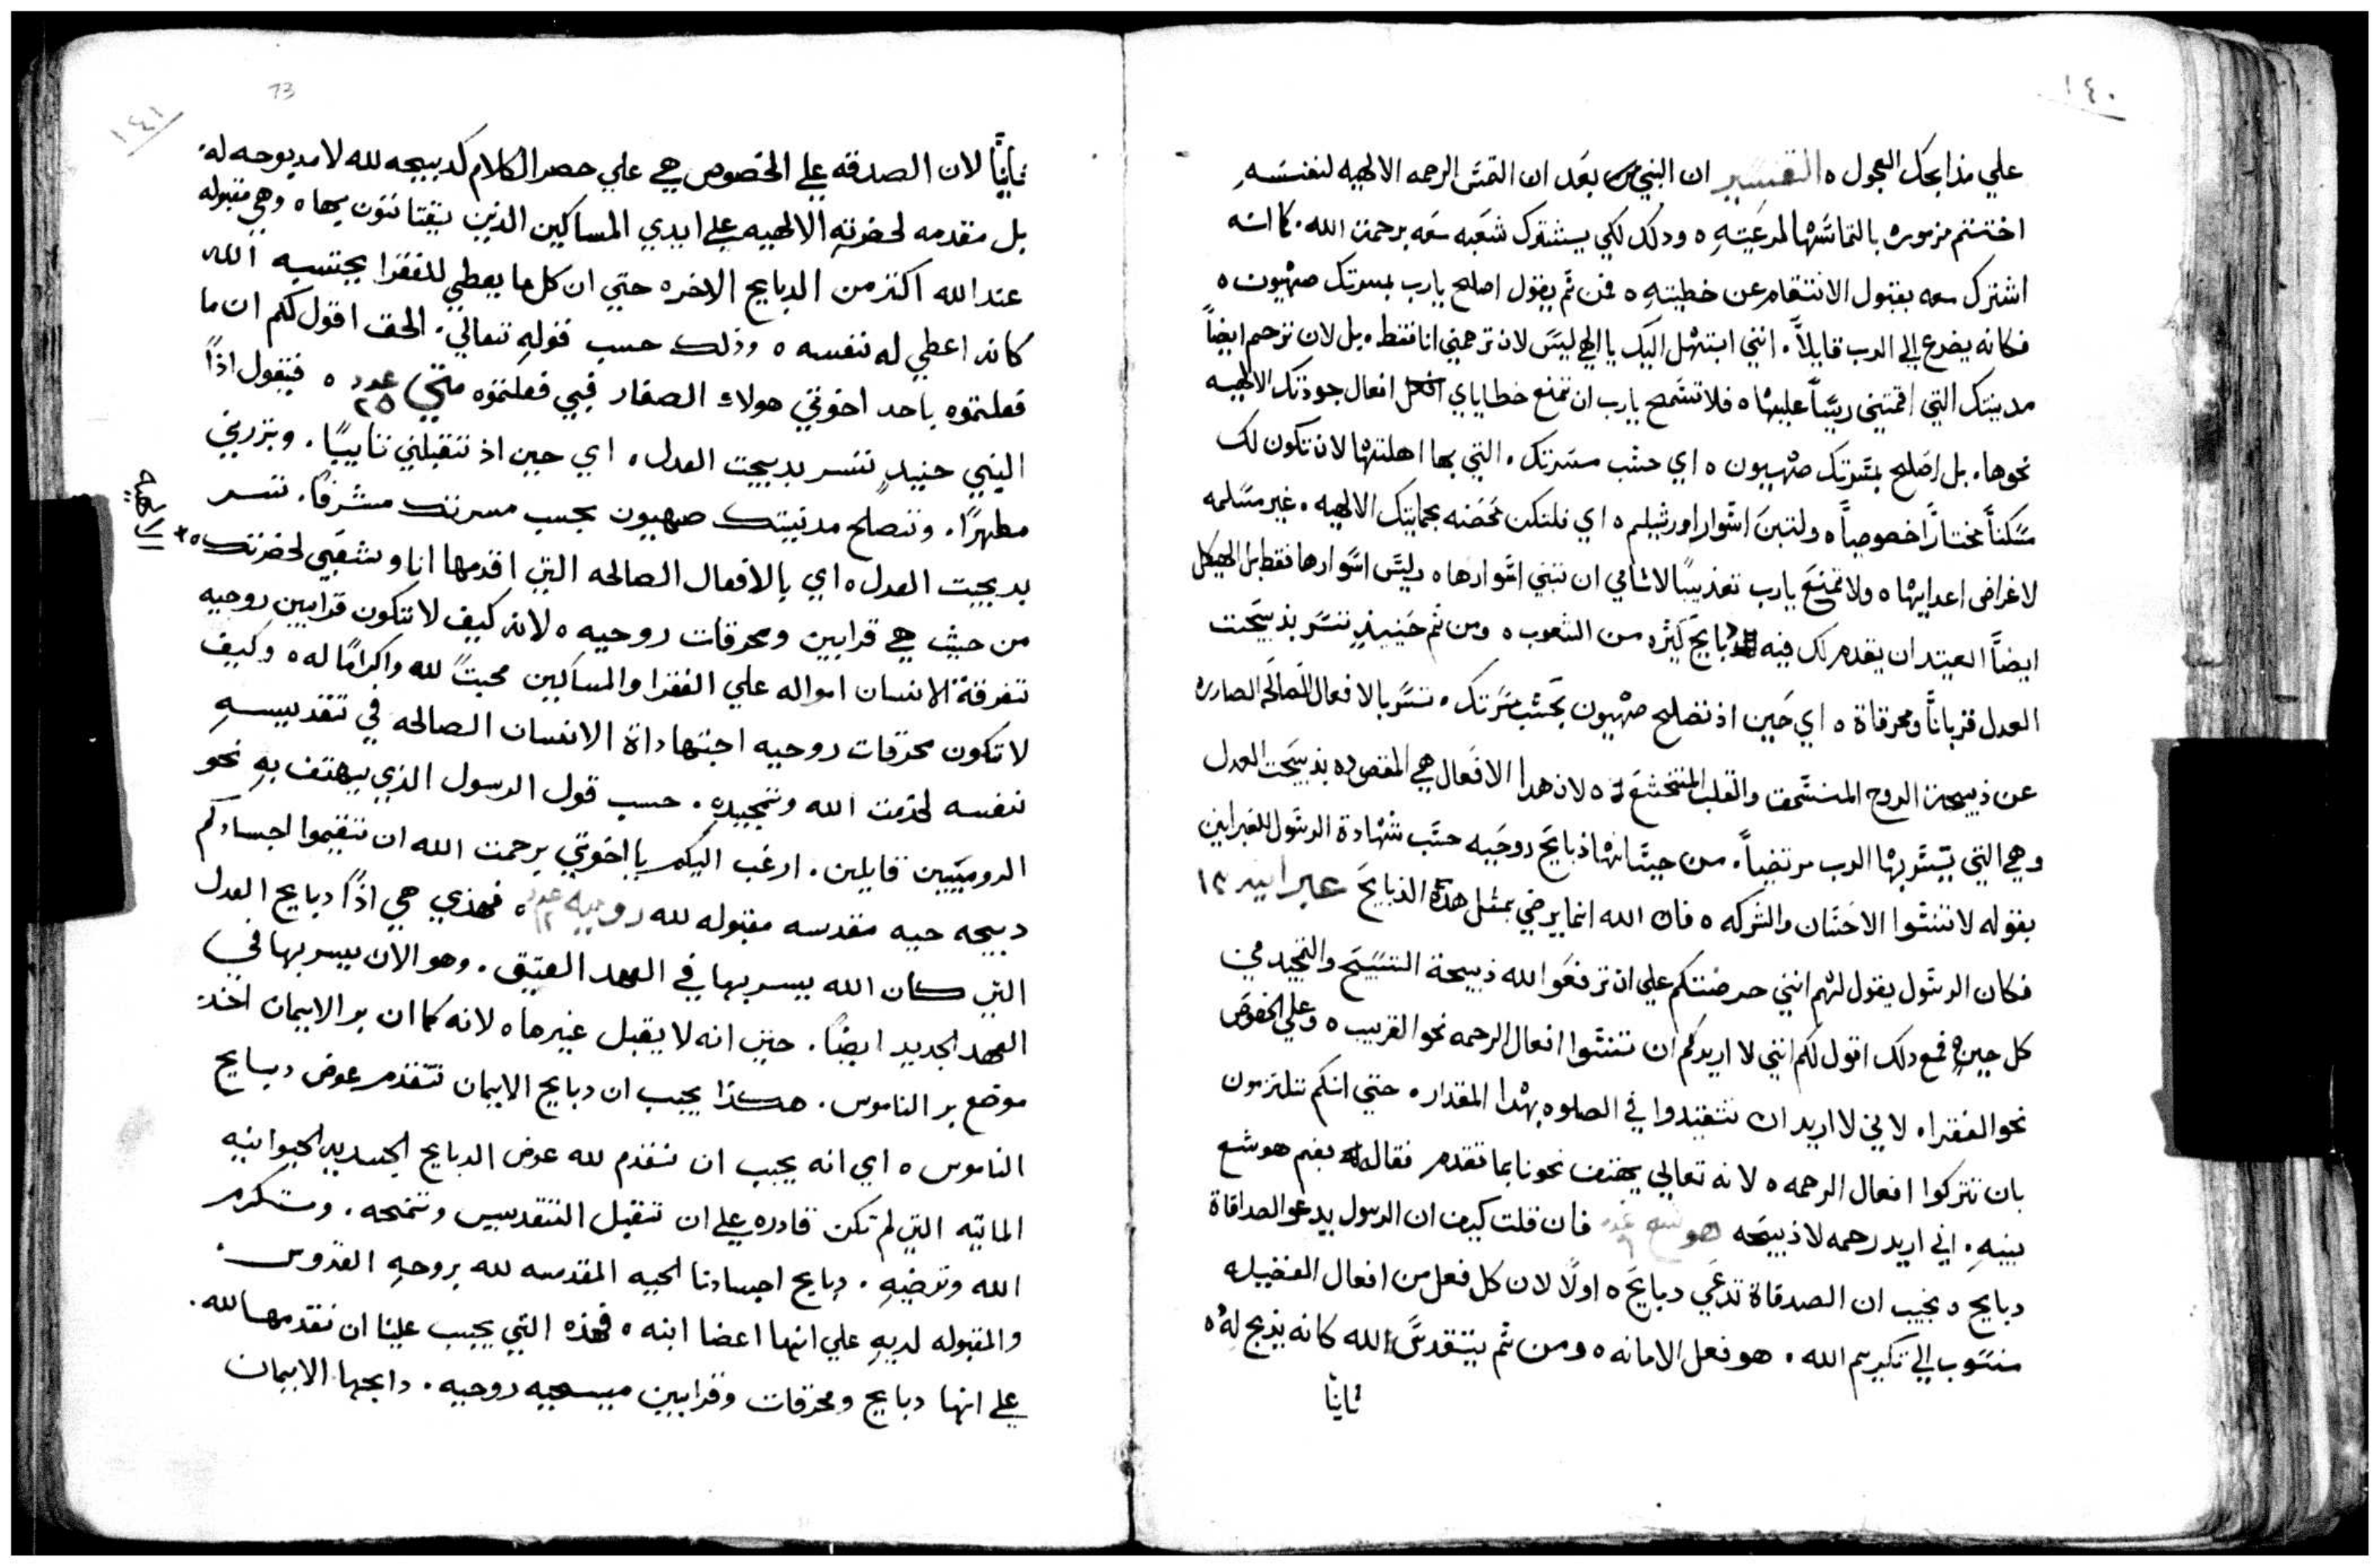 ١٤٠
علي مذابحك العجول ه التفسير ان النبي بعد ان التمس الرحمه الالهيه لنفسه
اختتم مزموره بالتماسها لمرعيته ه ودلك لكي يشترك شعبه معه برحمت الله . كما انه
اشترك معه بقبول الانتقام عن خطيته ه فمن ثم يقول اصلح يارب بمسرتك صهيون ه
فكانه يضرع الي الرب قايلاً . انني ابتهل اليك يا الهي ليس لان ترحمني انا فقط . بل لان ترحم ايضاً
مدينتك التي اقمتني ريساً عليها ه فلا تسمح يارب ان تمنع خطاياي افعال جودتك الالهيه
نحوها . بل اصلح بمسرتك صهيون ه اي حسب مسرتك . التي بها اهلتها لان تكون لك
مسكناً مختاراً خصوصياً ه ولتبن اسوار اورشليم ه اي فلتكن محصنه بحمايتك الالهيه . غير مسلمه
لاغراض اعدايها ه ولا تمنع يارب تعذيباً لاثامي ان تبني اسوارها ه وليس اسوارها فقط بل الهيكل
ايضاً العتيد ان يقدم لك فيه دبايح كثره من الشعوب ه ومن ثم حنيذٍ تسر بذبيحت
العدل قرباناً ومحرقاة ه اي حين اذ تصلح صهيون بحسب مسرتك . تسر بالافعال الصالحه الصادره
عن ذبيحة الروح المنسحق والقلب المتخشع ه لان هدا الافعال هي المقصوده بذبيحت العدل
وهي التي يسر بها الرب مرتضياً . من حيث انها ذبايح روحيه حسب شهادة الرسول للعبرانين
بقوله لا تنسوا الاحسان والشركه ه فان الله انما يرضي بمثل هذه الذبايح عبرانيه ١٣
فكان الرسول يقول لهم انني حرضتكم علي ان ترفعوا الله ذبيحة التسبيح والتمجيد في
كل حين ه فمع دلك اقول لكم انني لا اريدكم ان تنسوا افعال الرحمه نحو القريب ه وعلي الخصوص
نحو الفقرا . لاني لا اريد ان تتقيدوا في الصلوه بهدا المقدار ه حتي انكم تلتزمون
بان تتركوا افعال الرحمه ه لانه تعالي يهتف نحونا بما تقدم فقاله بفم هوشع
نبيه . اني اريد رحمه لا ذبيحه هوشع عدد ٦ فان قلت كيف ان الرسول يدعو الصداقاة
دبايح ه نجيب ان الصدقاة تدعي دبايح ه اولاً لان كل فعل من افعال الفضيله
منسوب الي تكريم الله . هو فعل الامانه ه ومن ثم يتقدس الله كانه يذبح له ه
ثانياً
73
١٤١
ثانياً لان الصدقه علي الخصوص هي علي حصر الكلام كدبيحه لله لا مدبوحه له
بل مقدمه لحضرته الالهيه علي ايدي المساكين الذين يقتاتون بها ه وهي مقبوله
عند الله اكثر من الدبايح الاخره حتي ان كل ما يعطي للفقرا يحتسبه الله
كانه اعطي له نفسه ه وذلك حسب قوله تعالي . الحق اقول لكم ان ما
فعلتموه باحد اخوتي هولاء الصغار فبي فعلتموه متي عدد ٢٥ ه فيقول اذاً
النبي حنيذٍ تسر بدبيحت العدل . اي حين اذ تتقبلني تايباً . وتبررني
مطهراً . وتصلح مدينتك صهيون بحسب مسرتك مشرفاً . تسر
بدبيحت العدل ه اي بالافعال الصالحه التي اقدمها انا وشعبي لحضرتك ه +
الالهيه
من حيث هي قرابين ومحرقات روحيه ه لانه كيف لا تكون قرابين روحيه
تفرقة الانسان امواله علي الفقرا والمساكين محبتً لله واكراماً له ه وكيف
لا تكون محرقات روحيه اجتهاداة الانسان الصالحه في تقديسه
نفسه لخدمت الله وتمجيده . حسب قول الرسول الذي يهتف به نحو
الروميين قايلين . ارغب اليكم يا اخوتي برحمت الله ان تقيموا اجسادكم
دبيحه حيه مقدسه مقبوله لله روميه عدد ١٢ ه فهذي هي اذاً دبايح العدل
التي كان الله يسر بها في العهد العتيق . وهو الان يسر بها في
العهد الجديد ايضاً . حتي انه لا يقبل غيرها ه لانه كما ان بر الايمان اخذ
موضع بر الناموس . هكذا يجب ان دبايح الايمان تتقدم عوض دبايح
الناموس ه اي انه يجب ان نقدم لله عوض الدبايح الجسديه الحيوانيه
الماتيه التي لم تكن قادره علي ان تقبل التقديس وتمنحه . وتكرم
الله وترضيه . دبايح اجسادنا الحيه المقدسه لله بروحه القدوس .
والمقبوله لديه علي انها اعضا ابنه ه فهذه التي يجب علينا ان نقدمها لله .
علي انها دبايح ومحرقات وقرابين مسيحيه روحيه . دابحها الايمان